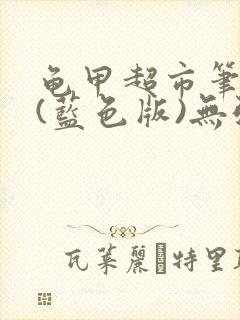 龟甲超市筆
(藍色版)無
瓦萊麗特里